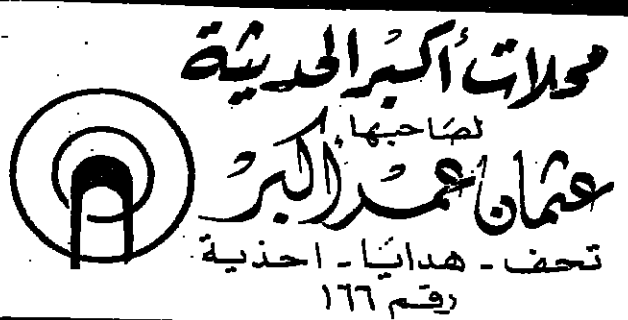 محلات أكبر الحديثة
لصاحبها
عثمان عمر أكبر
تحف - هدايا - احذية
رقم ١٦٦